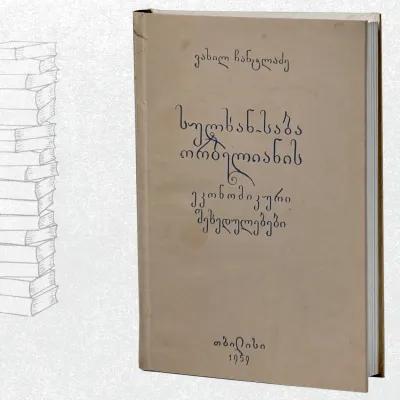 ვასილ ჩანტლაძე
სულხან-საბა
ორბელიანის
ეკონომიკური
შეხედულებები
თბილისი
1959